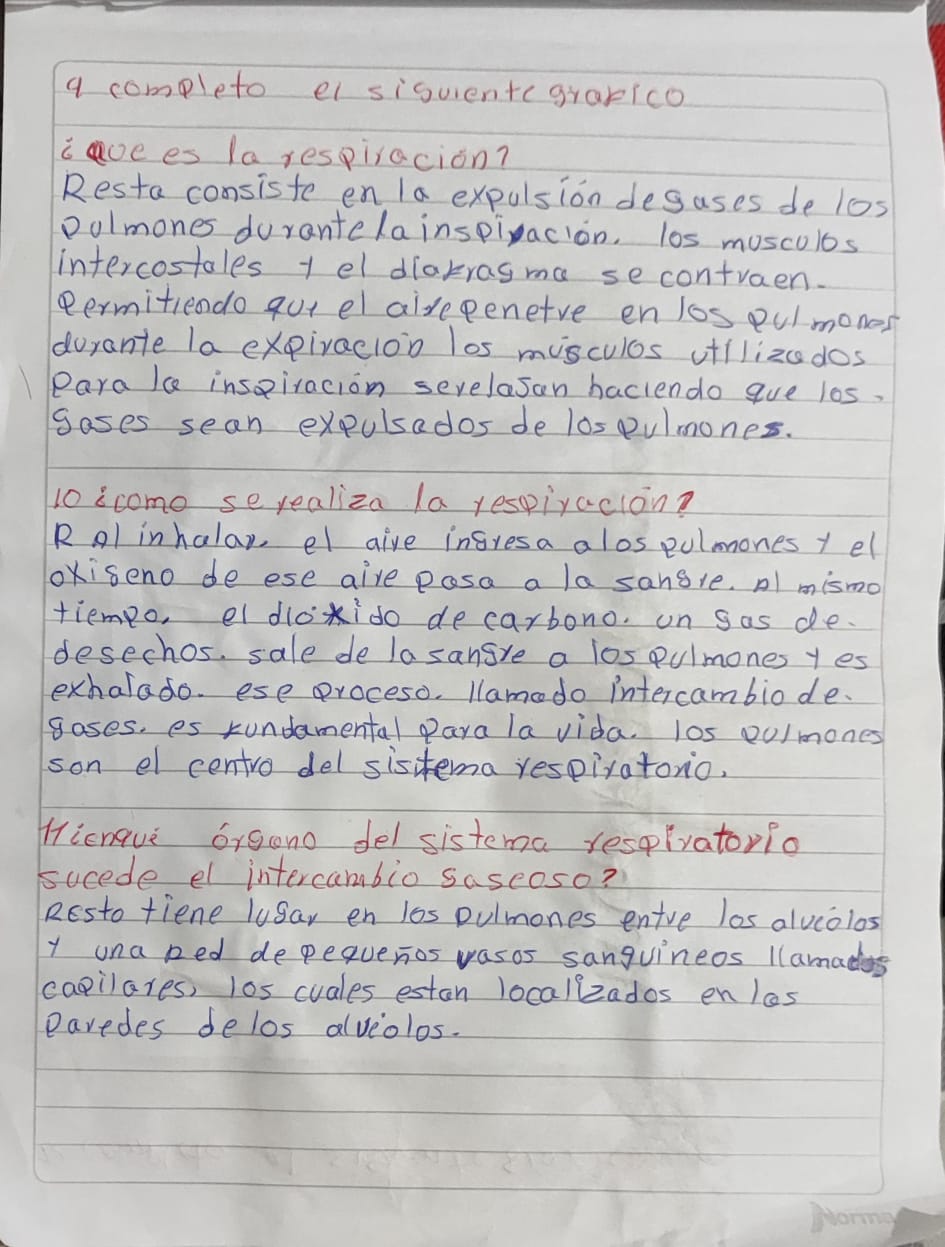 9 completo el siguiente grafico
¿que es la respiración?
Resta consiste en la expulsión de gases de los
pulmones durante la inspiración. los musculos
intercostales y el diafragma se contraen.
permitiendo que el aire penetre en los pulmones
durante la expiración los músculos utilizados
para la inspiración se relajan haciendo que los.
gases sean expulsados de los pulmones.
10 ¿como se realiza la respiración?
R Al inhalar, el aire ingresa a los pulmones y el
oxigeno de ese aire pasa a la sangre. Al mismo
tiempo, el dioxido de carbono. un gas de.
desechos. sale de la sangre a los pulmones y es
exhalado. ese proceso. llamado intercambio de.
gases. es fundamental para la vida. los pulmones
son el centro del sisitema respiratorio.
11 ¿en qué órgano del sistema respiratorio
sucede el intercambio gaseoso?
Resto tiene lugar en los pulmones entre los alveólos
y una red de pequeños vasos sanguineos llamados
capilares, los cuales estan localizados en las
paredes de los alvéolos.
Norma